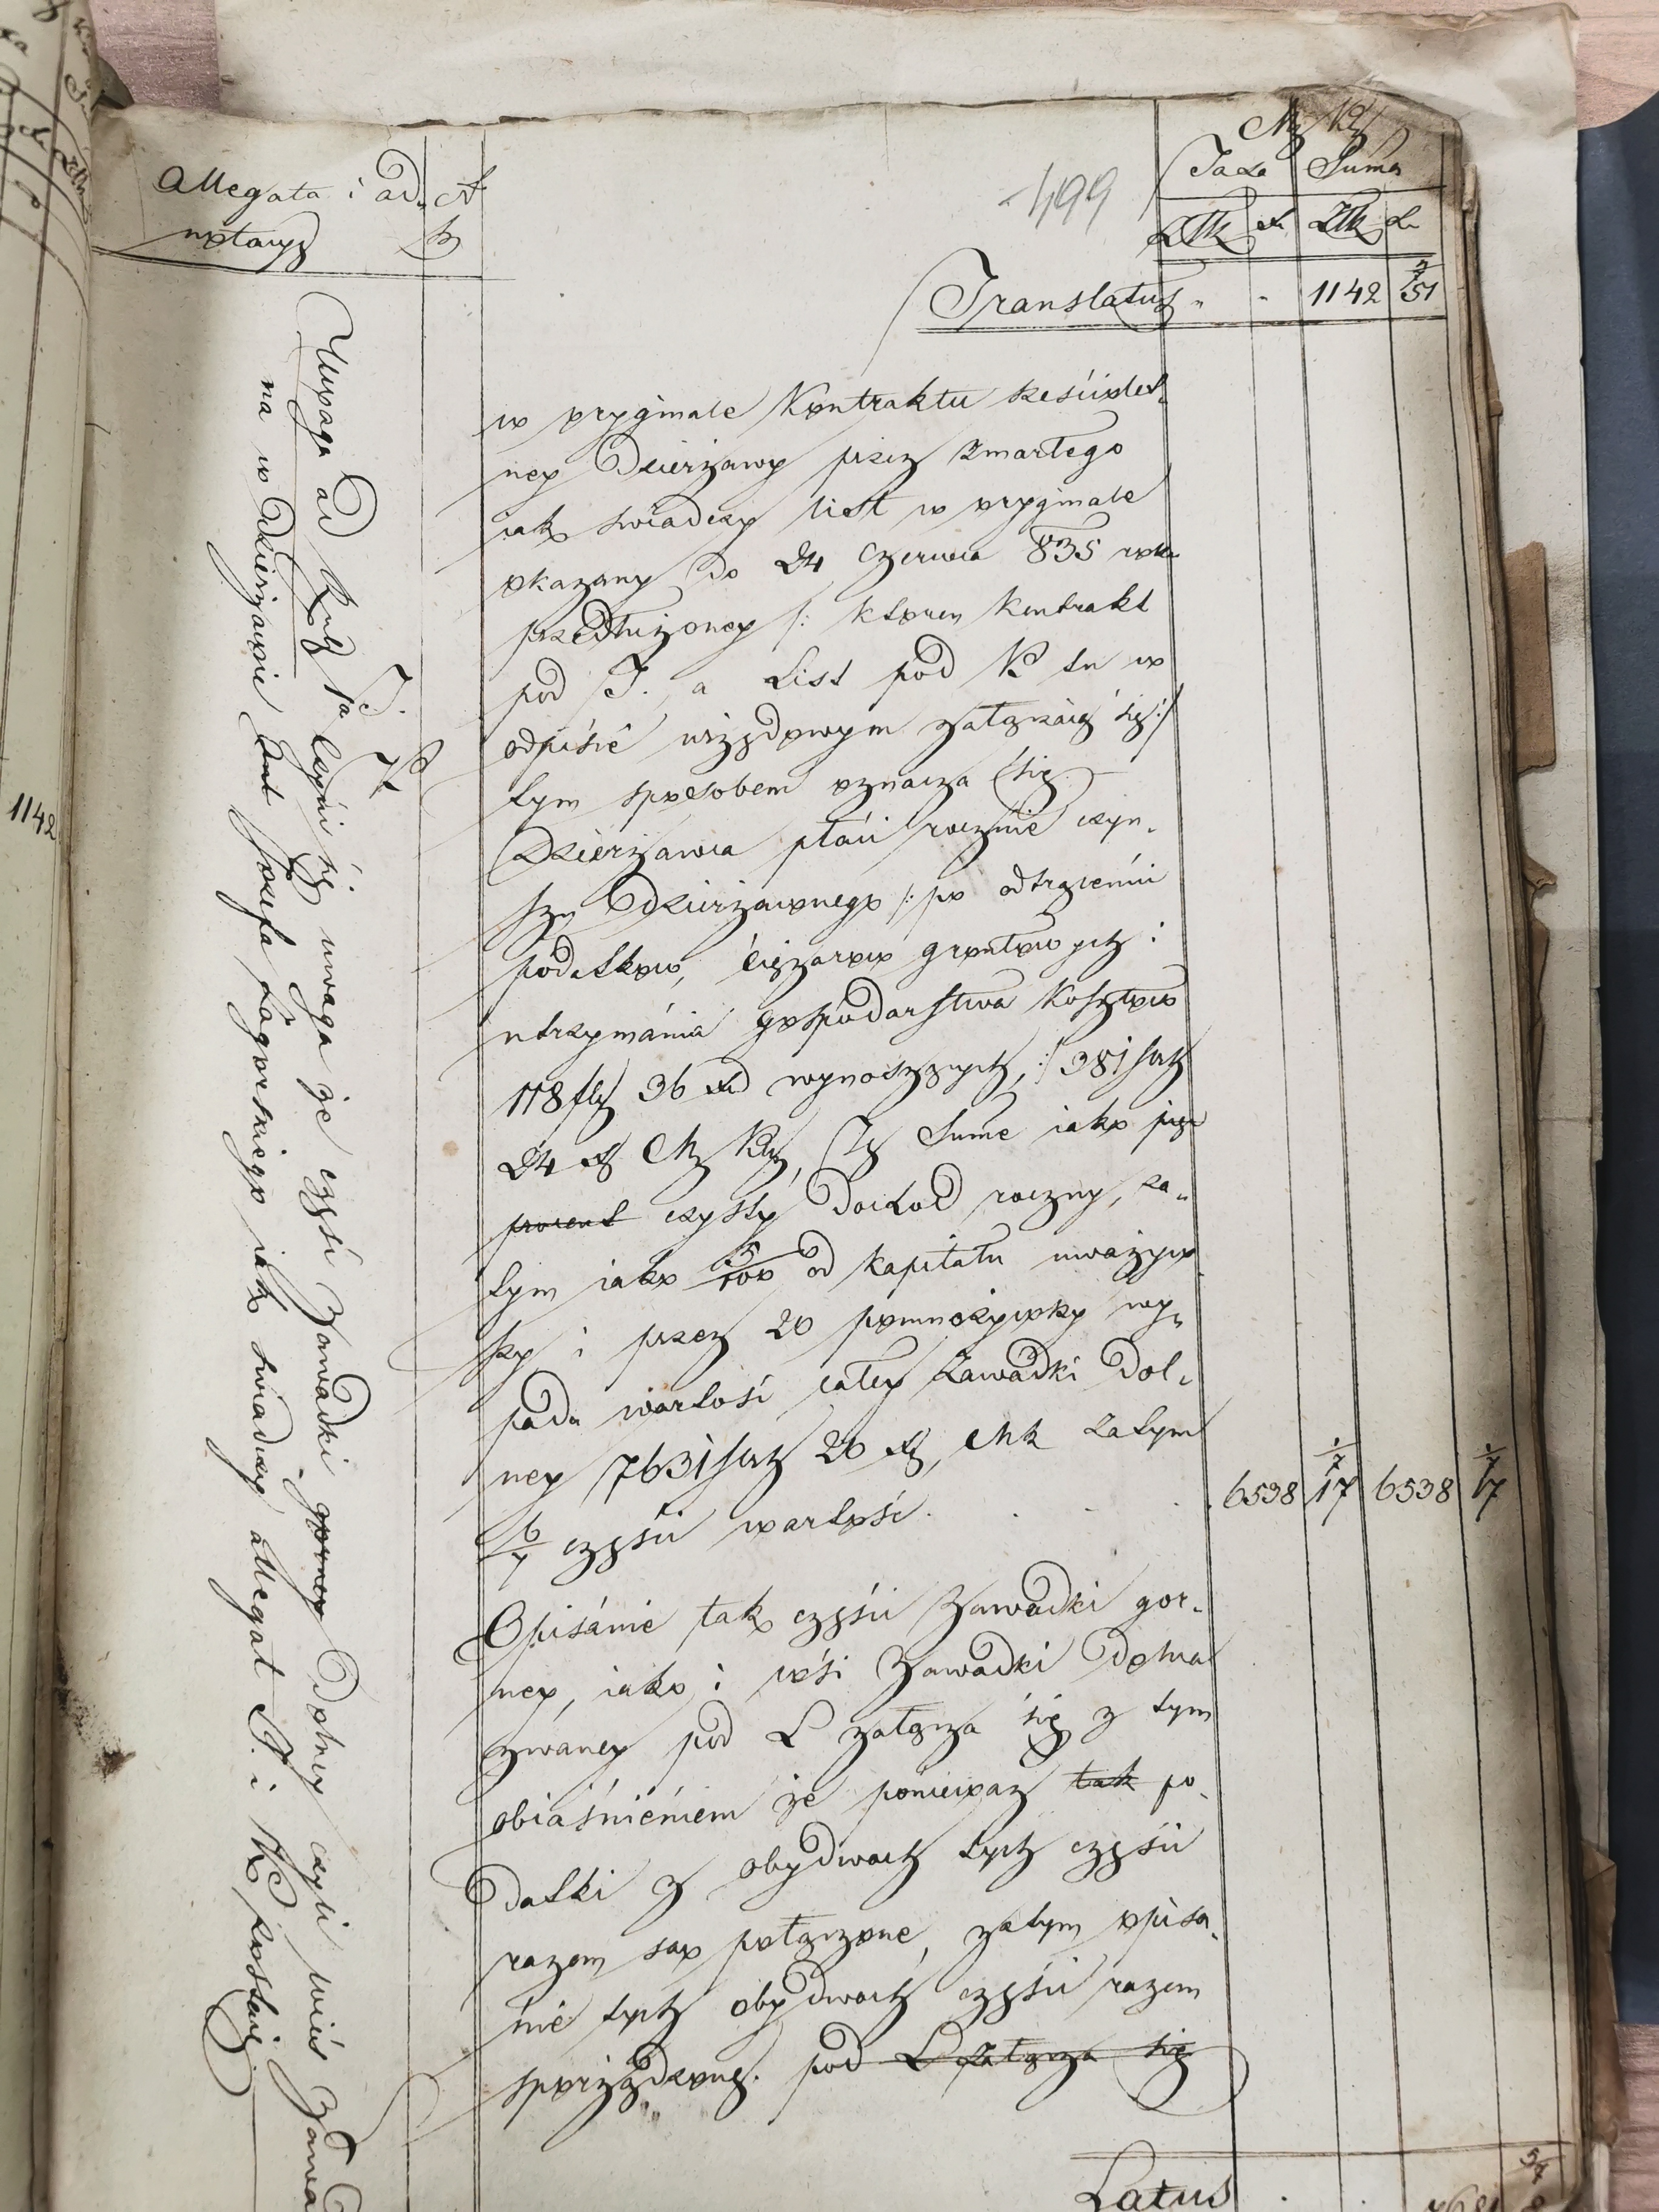 Allegata i ad-
notacyę
499
Mz Kz
Taxa Suma
ZłR x ZłR x
Translatus " - 1142 51
w oryginale Kontraktu sześciolet-
ney Dzierżawy przez zmarłego
jak swiadczy list w oryginale
okazany do 24 Czerwca 835 roku
przedłużoney /: ktoren kontrakt
pod J. a List pod K tu w
odpisie urzędowym załączaią się :/
tym sposobem oznacza się
Dzierżawca płaci rocznie czyn-
szu Dzierżawnego /: po odtrąceniu
podatkow, ciężarow gruntowych i
utrzymania gospodarstwa Kosztow
118 36 wynoszących, :/ 381
24 Tę Sume iako
procent czysty Dochod roczny, za-
tym iako 5/100 od kapitału uważyw-
szy i przez 20 pomnożywszy wy-
pada wartość całey Zawadki Dol-
ney 7631 20 Mk zatym
6/7 częśći wartość.
6538 17 6538 17
Opisanie tak częśći Zawadki gor-
ney, iako i wśi Zawadki Dolna
zwaney pod L załącza się z tym
obiaśnieniem że ponieważ tak po-
datki z obydwoch tych częśći
razem są połączone, zatym opisa-
nie tych obydwoch częśći razem
sporządzone. pod L załącza się
Latus
J.
K
Uwaga ad ta częśći uwaga że częśći Zawadki gorney Dolney czyli wieś Zawad
na w Dzierżawie Josefa Łagowskiego iak swiadczy allegat J. i K
1142